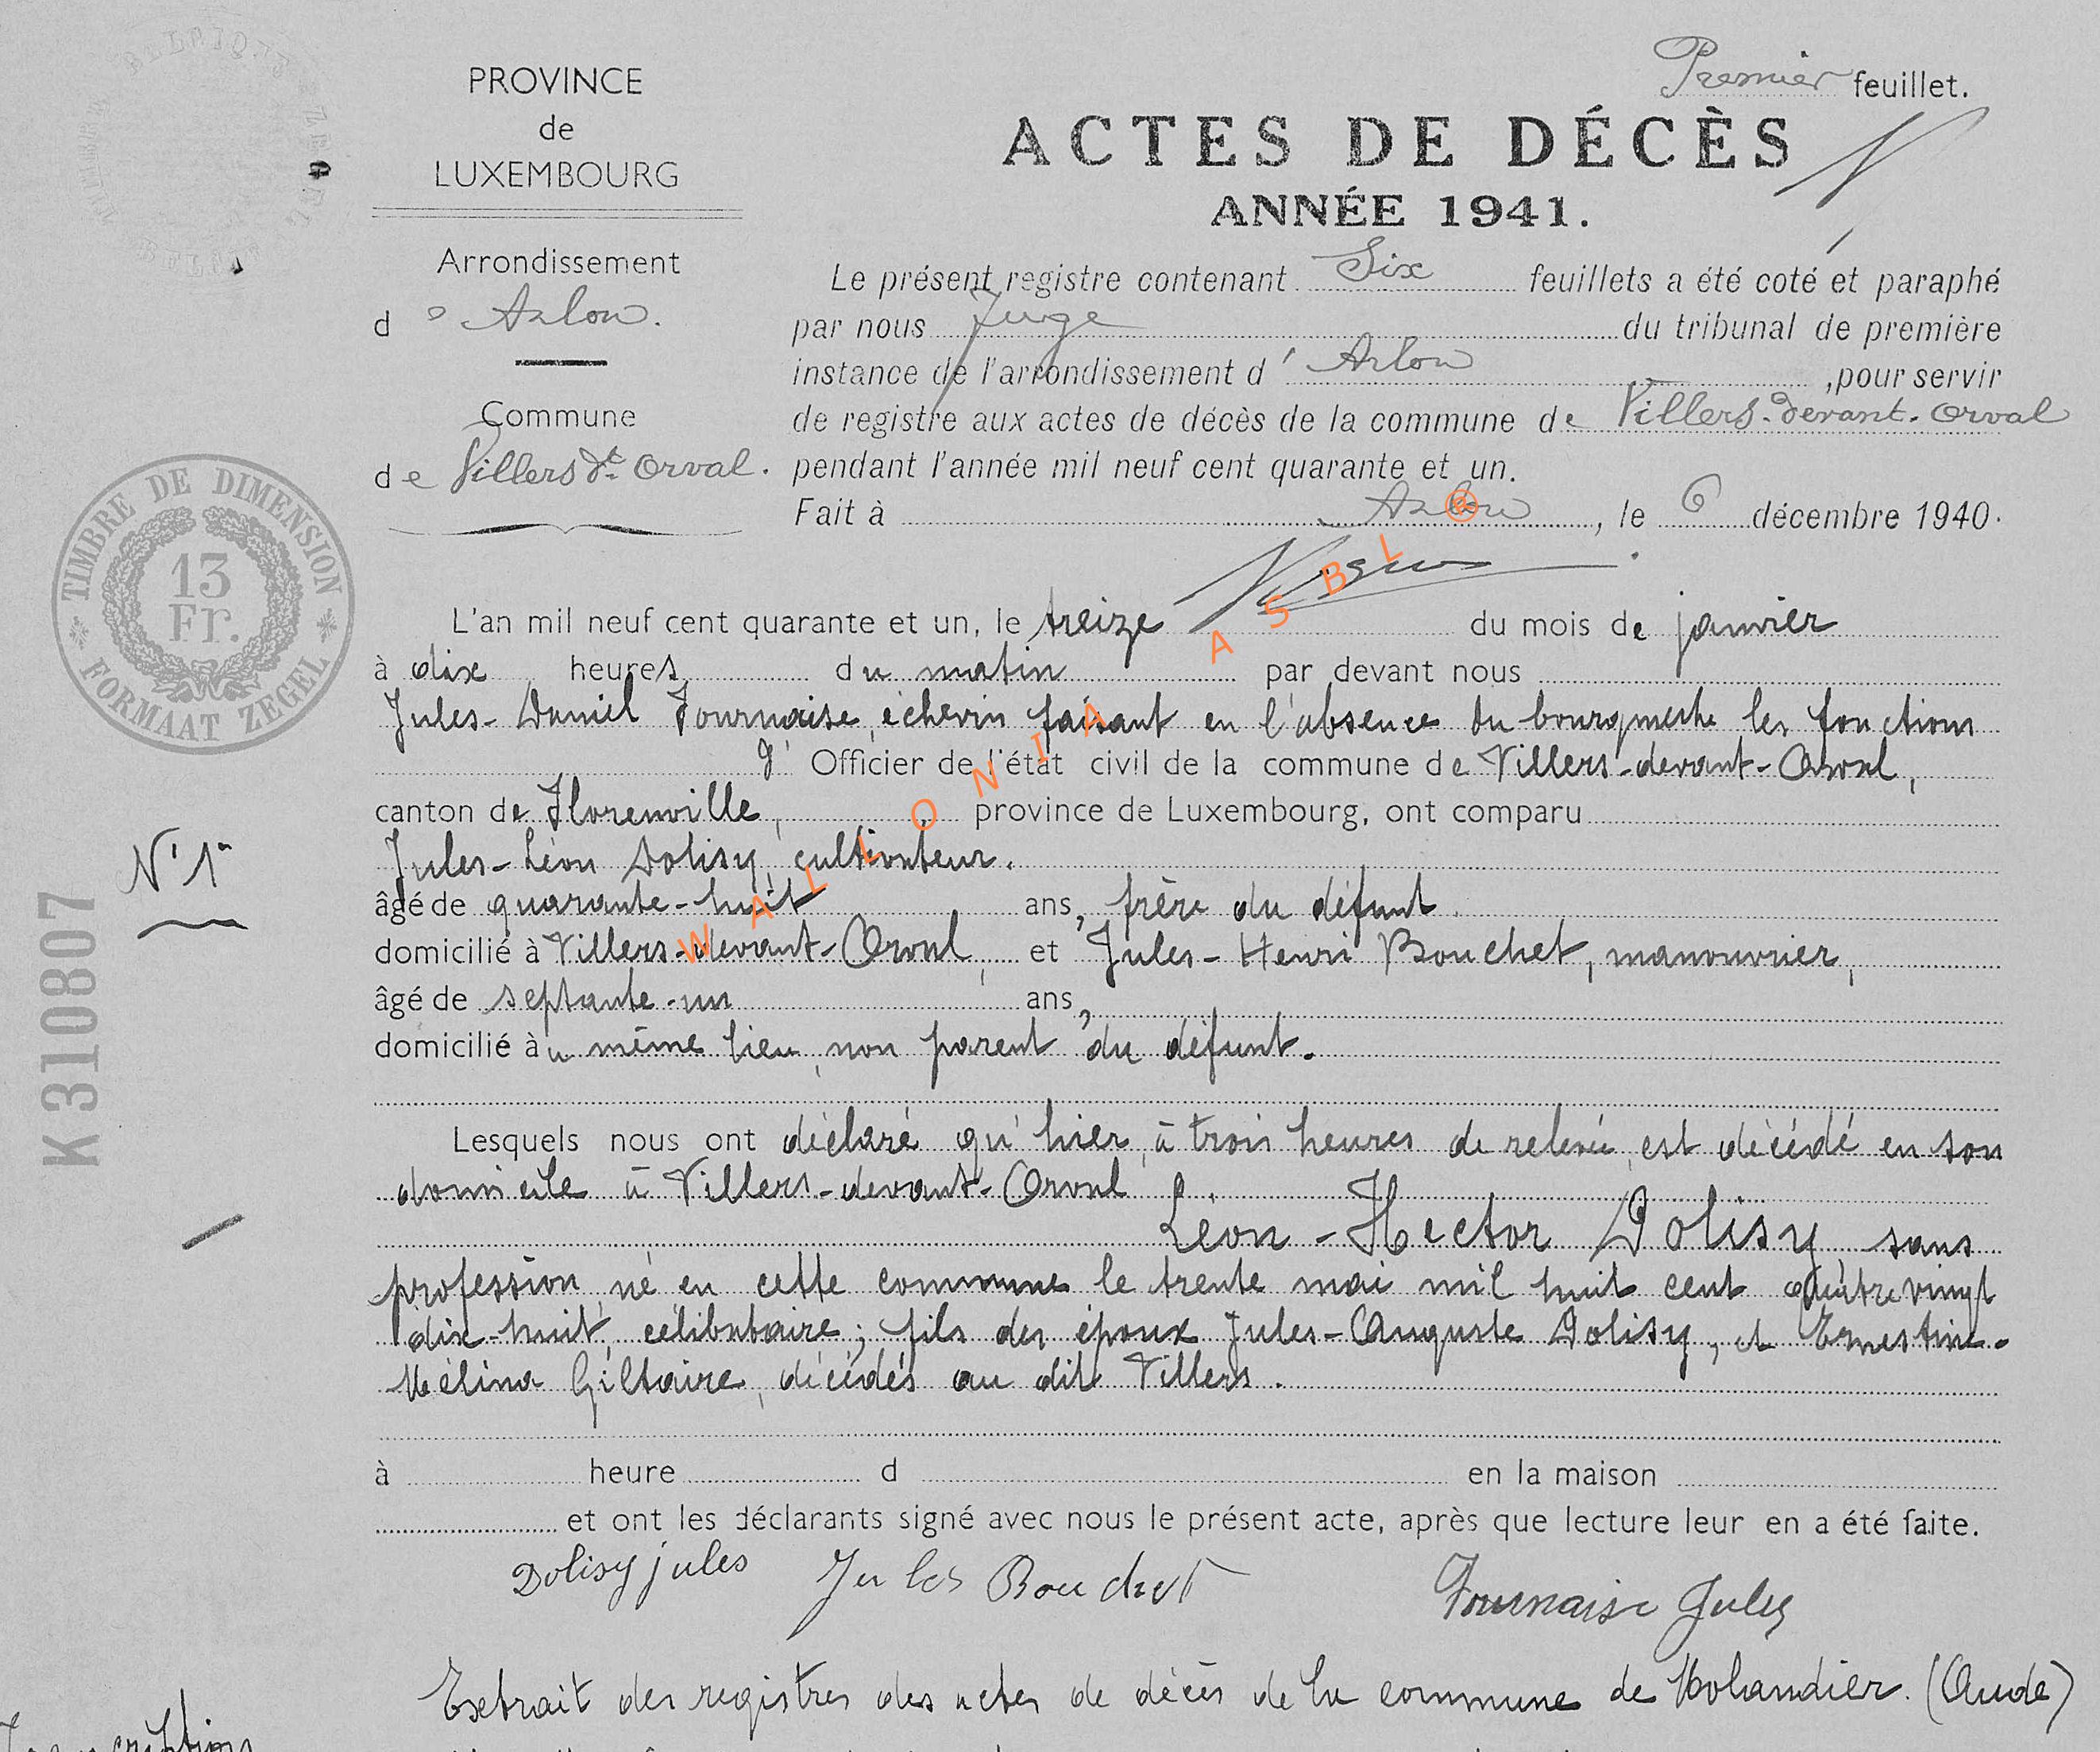 Premier feuillet.
PROVINCE
de
LUXEMBOURG
ACTES DE DÉCÈS
ANNÉE 1941.
Arrondissement
d' Arlon.
Commune
de Villers dt Orval.
Le présent registre contenant Six feuillets a été coté et paraphé
par nous Juge du tribunal de première
instance de l'arrondissement d' Arlon, pour servir
de registre aux actes de décès de la commune de Villers-devant-Orval
pendant l'année mil neuf cent quarante et un.
Fait à Arlon, le 6 décembre 1940.
TIMBRE DE DIMENSION
13
Fr.
FORMAAT ZEGEL
K 310807
WALLONIA ASBL ®
N° 1
L'an mil neuf cent quarante et un, le treize du mois de janvier
à dix heures du matin par devant nous
Jules-Daniel Fournaise, échevin faisant en l'absence du bourgmestre les fonctions
d' Officier de l'état civil de la commune de Villers-devant-Orval,
canton de Florenville, province de Luxembourg, ont comparu
Jules-Léon Dolisy, cultivateur.
âgé de quarante-huit ans, frère du défunt.
domicilié à Villers-devant-Orval, et Jules-Henri Bouchet, manouvrier,
âgé de septante-un ans,
domicilié au même lieu, non parent du défunt.
Lesquels nous ont déclaré qu'hier, à trois heures de relevée, est décédé en son
domicile à Villers-devant-Orval.
Léon-Hector Dolisy, sans
profession, né en cette commune le trente mai mil huit cent quatre vingt
dix-huit, célibataire; fils des époux Jules-Auguste Dolisy, et Ernestine-
Mélina Giltaire, décédés au dit Villers.
à heure d en la maison
et ont les déclarants signé avec nous le présent acte, après que lecture leur en a été faite.
Dolisy jules Jules Bouchet Fournaise Jules
Extrait des registres des actes de décès de la commune de Molandier. (Aude)
Transcription